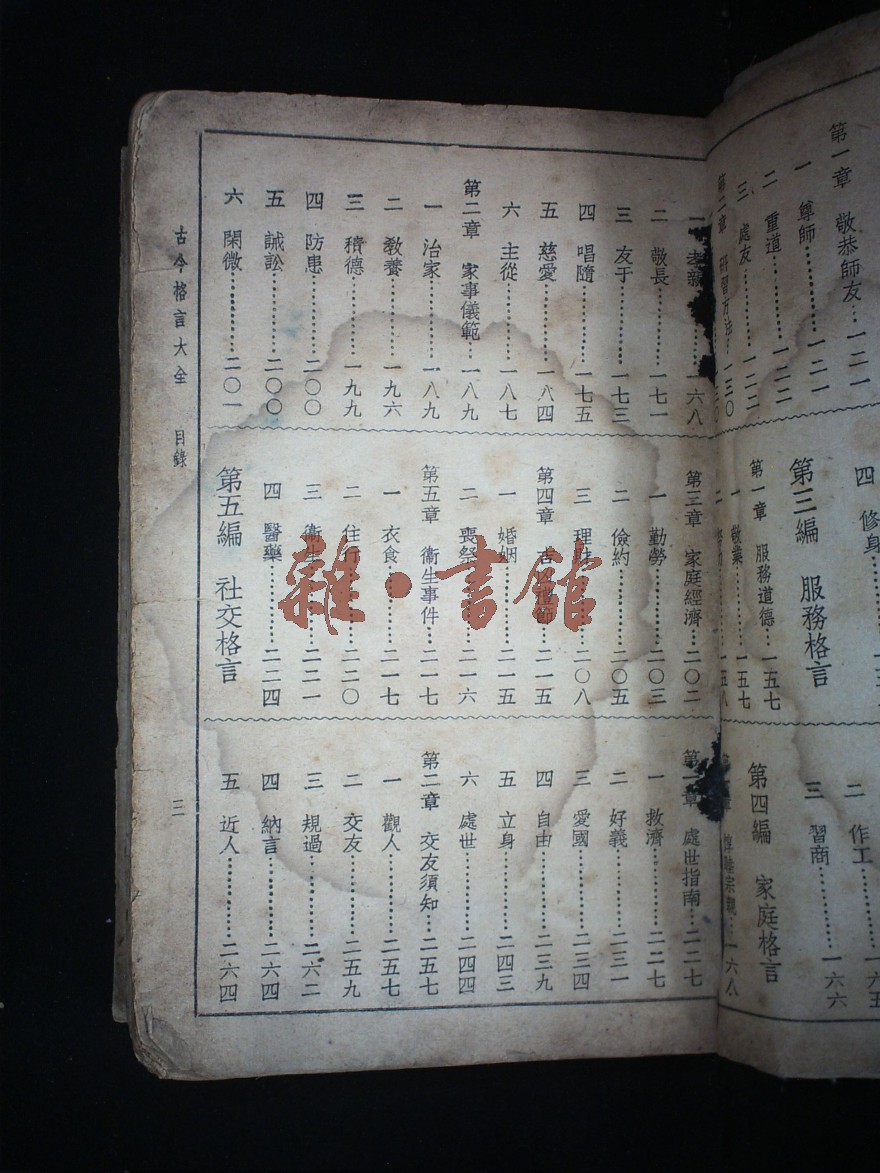 第一章 敬恭師友…一二一
一 尊師………一二一
二 重道………一二二
三 處友………一二二
第二章 研習方法…一三〇
四 修身
第三編 服務格言
第一章 服務道德…一五七
一 敬業………一五七
二 作工………一六五
三 習商………一六六
第四編 家庭格言
一六八
一 孝親………一六八
二 敬長………一七一
三 友于………一七三
四 唱隨………一七五
五 慈愛………一八四
六 主從………一八七
第二章 家事儀範…一八九
一 治家………一八九
二 教養………一九六
三 積德………一九九
四 防患………二〇〇
五 誡訟………二〇〇
六 閑微………二〇一
第三章 家庭經濟…二〇二
一 勤勞………二〇三
二 儉約………二〇五
三 理財………二〇八
第四章 吉凶禮節…二一五
一 婚姻………二一五
二 喪祭………二一六
第五章 衞生事件…二一七
一 衣食………二一七
二 住行………二二〇
三 衞生………二二一
四 醫藥………二二四
第五編 社交格言
第一章 處世指南…二二七
一 救濟………二二七
二 好義………二三一
三 愛國………二三四
四 自由………二三九
五 立身………二四三
六 處世………二四四
第二章 交友須知…二五七
一 觀人………二五七
二 交友………二五九
三 規過………二六二
四 納言………二六四
五 近人………二六四
古今格言大全 目錄
三
雜·書館